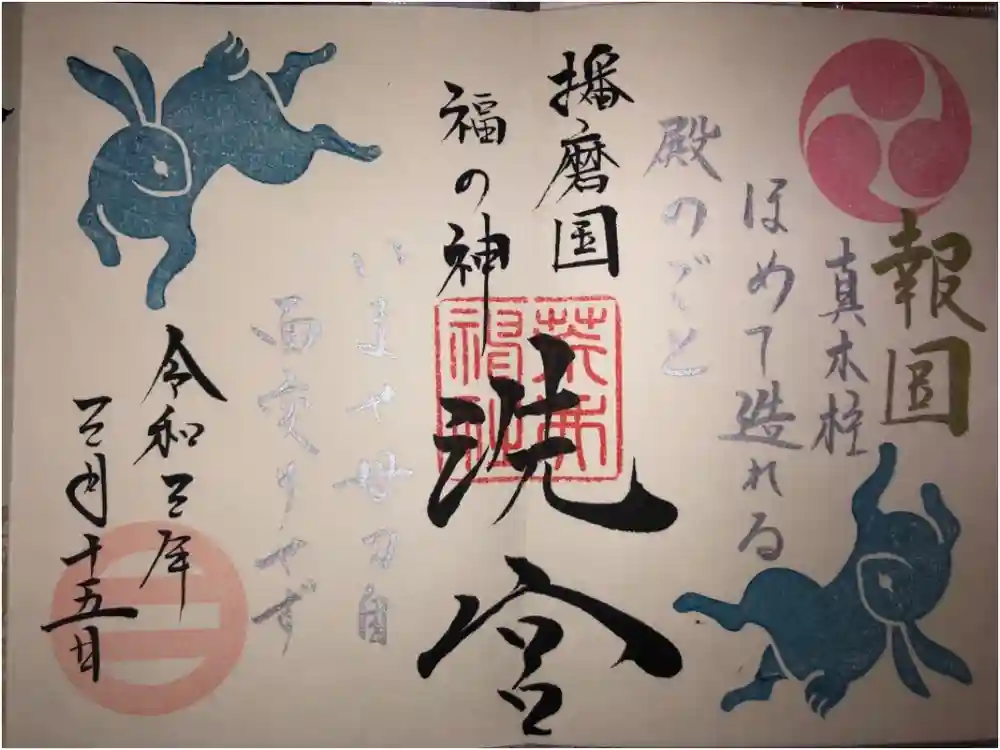 報
真木柱
ほめて造れる
殿のごと
播磨国
福の神
洗宮
荒井神社
いませ母刀自
面変りせず
令和三年
三月十五日